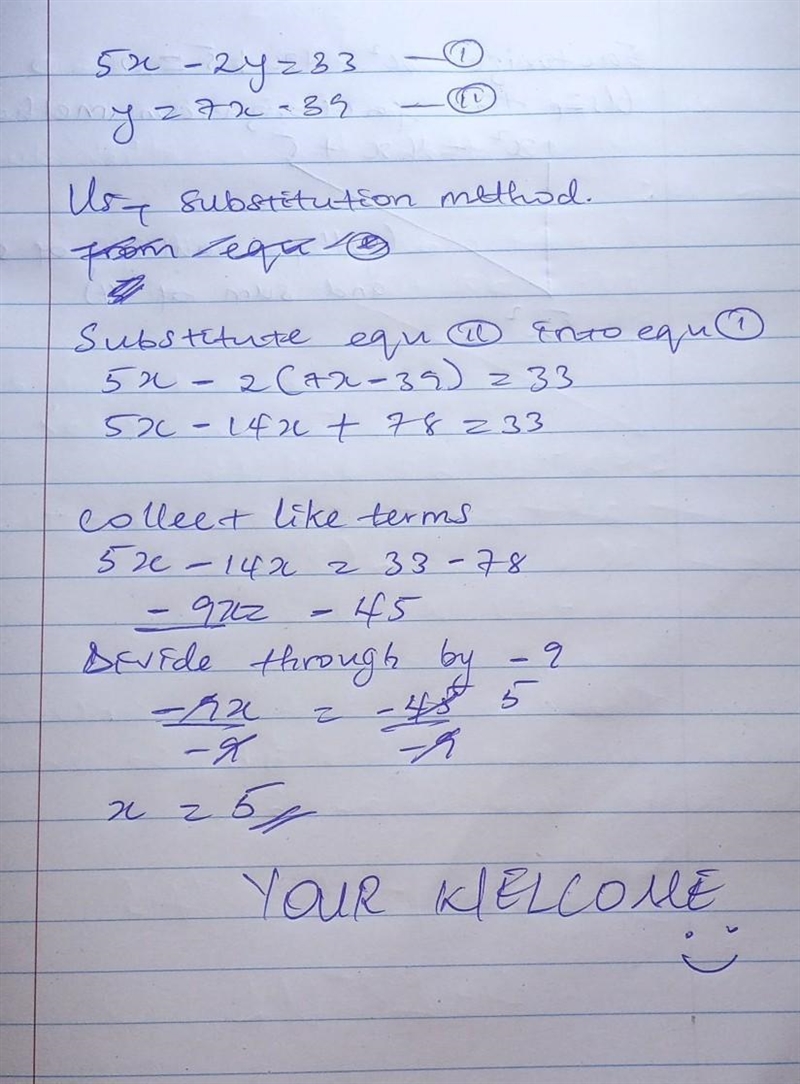 5x - 2y = 33 — (i)
y = 7x - 39 — (ii)
Us- substitution method.
from equ
Substitute equ (ii) into equ (i)
5x - 2(7x - 39) = 33
5x - 14x + 78 = 33
Collect like terms
5x - 14x = 33 - 78
- 9x = - 45
Divide through by - 9
-9x = -45 5
-9 -9
x = 5
YOUR WELCOME